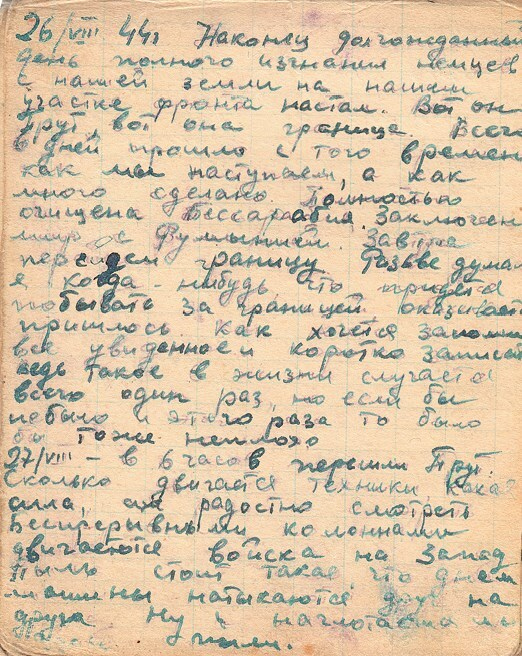 26/VIII 44г Наконец долгожданный
день полного изгнания немцев
с нашей земли на нашем
участке фронта настал. Вот он
Прут, вот она граница. Всего
6 дней прошло с того времени
как мы наступаем, а как
много сделано. Полностью
очищена Бессарабия. Заключен
мир с Румынией. Завтра
перейдем границу Разве думал
я когда-нибудь что придется
побывать за границей оказывает
пришлось. Как хочется запомн
все увиденное и коротко записат
ведь такое в жизни случается
всего один раз, но если бы
небыло и этого раза то было
бы тоже неплохо
27/VIII - в 6 часов перешли Прут.
Сколько двигается техники, какая
сила, аж радостно смотреть
Беспрерывными колоннами
двигаются войска на Запад
Пыль стоит такая, что днем
машины натыкаются друг на
друга Ну и наглотались мы
пыли.